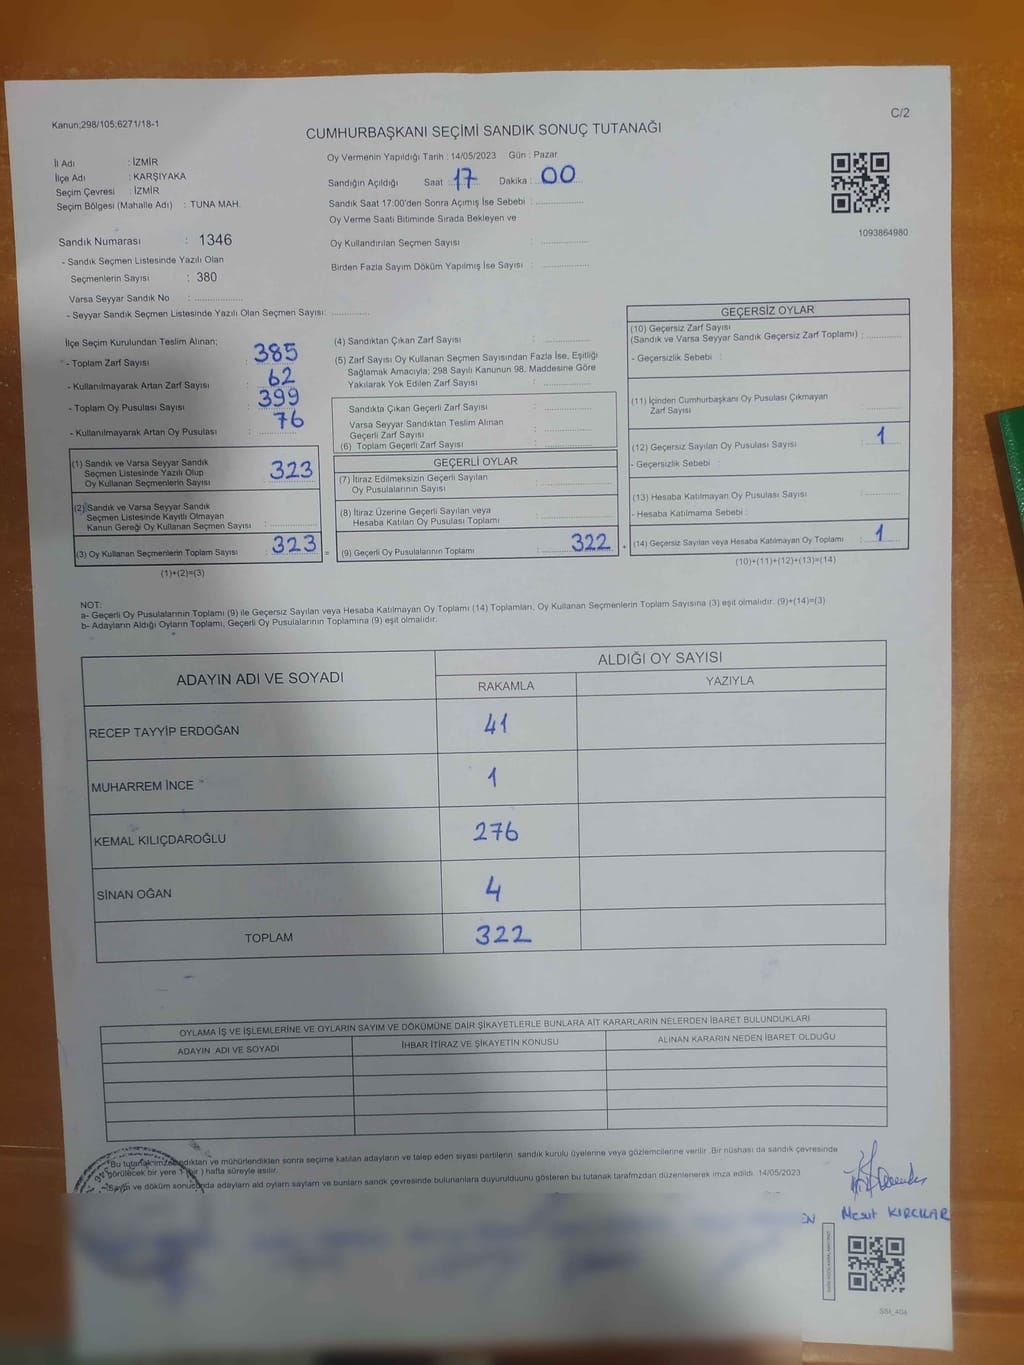 Kanun:298/105;6271/18-1
C/2
CUMHURBAŞKANI SEÇİMİ SANDIK SONUÇ TUTANAĞI
İl Adı : İZMİR
İlçe Adı : KARŞIYAKA
Seçim Çevresi : İZMİR
Seçim Bölgesi (Mahalle Adı) : TUNA MAH.
Oy Vermenin Yapıldığı Tarih : 14/05/2023 Gün : Pazar
Sandığın Açıldığı Saat 17 Dakika : 00
Sandık Saat 17:00'den Sonra Açımış İse Sebebi :
Oy Verme Saati Bitiminde Sırada Bekleyen ve
Oy Kullandırılan Seçmen Sayısı :
Birden Fazla Sayım Döküm Yapılmış İse Sayısı :
1093864980
Sandık Numarası : 1346
- Sandık Seçmen Listesinde Yazılı Olan
Seçmenlerin Sayısı : 380
Varsa Seyyar Sandık No :
- Seyyar Sandık Seçmen Listesinde Yazılı Olan Seçmen Sayısı:
İlçe Seçim Kurulundan Teslim Alınan;
- Toplam Zarf Sayısı : 385
- Kullanılmayarak Artan Zarf Sayısı : 62
- Toplam Oy Pusulası Sayısı : 399
- Kullanılmayarak Artan Oy Pusulası : 76
(1) Sandık ve Varsa Seyyar Sandık
Seçmen Listesinde Yazılı Olup
Oy Kullanan Seçmenlerin Sayısı : 323
(2) Sandık ve Varsa Seyyar Sandık
Seçmen Listesinde Kayıtlı Olmayan
Kanun Gereği Oy Kullanan Seçmen Sayısı :
(3) Oy Kullanan Seçmenlerin Toplam Sayısı : 323
(1)+(2)=(3)
(4) Sandıktan Çıkan Zarf Sayısı :
(5) Zarf Sayısı Oy Kullanan Seçmen Sayısından Fazla İse, Eşitliği
Sağlamak Amacıyla; 298 Sayılı Kanunun 98. Maddesine Göre
Yakılarak Yok Edilen Zarf Sayısı :
Sandıkta Çıkan Geçerli Zarf Sayısı :
Varsa Seyyar Sandıktan Teslim Alınan
Geçerli Zarf Sayısı :
(6) Toplam Geçerli Zarf Sayısı :
GEÇERLİ OYLAR
(7) İtiraz Edilmeksizin Geçerli Sayılan
Oy Pusulalarının Sayısı :
(8) İtiraz Üzerine Geçerli Sayılan veya
Hesaba Katılan Oy Pusulası Toplamı :
= (9) Geçerli Oy Pusulalarının Toplamı : 322 +
GEÇERSİZ OYLAR
(10) Geçersiz Zarf Sayısı
(Sandık ve Varsa Seyyar Sandık Geçersiz Zarf Toplamı) :
- Geçersizlik Sebebi :
(11) İçinden Cumhurbaşkanı Oy Pusulası Çıkmayan
Zarf Sayısı :
(12) Geçersiz Sayılan Oy Pusulası Sayısı : 1
- Geçersizlik Sebebi :
(13) Hesaba Katılmayan Oy Pusulası Sayısı :
- Hesaba Katılmama Sebebi :
(14) Geçersiz Sayılan veya Hesaba Katılmayan Oy Toplamı : 1
(10)+(11)+(12)+(13)=(14)
NOT:
a- Geçerli Oy Pusulalarının Toplamı (9) ile Geçersiz Sayılan veya Hesaba Katılmayan Oy Toplamı (14) Toplamları, Oy Kullanan Seçmenlerin Toplam Sayısına (3) eşit olmalıdır. (9)+(14)=(3)
b- Adayların Aldığı Oyların Toplamı, Geçerli Oy Pusulalarının Toplamına (9) eşit olmalıdır.
ADAYIN ADI VE SOYADI
ALDIĞI OY SAYISI
RAKAMLA YAZIYLA
RECEP TAYYİP ERDOĞAN 41
MUHARREM İNCE 1
KEMAL KILIÇDAROĞLU 276
SİNAN OĞAN 4
TOPLAM 322
OYLAMA İŞ VE İŞLEMLERİNE VE OYLARIN SAYIM VE DÖKÜMÜNE DAİR ŞİKAYETLERLE BUNLARA AİT KARARLARIN NELERDEN İBARET BULUNDUKLARI
ADAYIN ADI VE SOYADI İHBAR İTİRAZ VE ŞİKAYETİN KONUSU ALINAN KARARIN NEDEN İBARET OLDUĞU
Bu tutanak imzalandıktan ve mühürlendikten sonra seçime katılan adayların ve talep eden siyasi partilerin sandık kurulu üyelerine veya gözlemcilerine verilir. Bir nüshası da sandık çevresinde
görülecek bir yere 1 (bir) hafta süreyle asılır.
Sayın ve döküm sonucunda adayların ald oyların saylam ve bunların sandk çevresinde bulunanlara duyurulduunu gösteren bu tutanak tarafmzdan düzenlenerek imza edildi. 14/05/2023
Mesut KIRCILAR
SSI_404